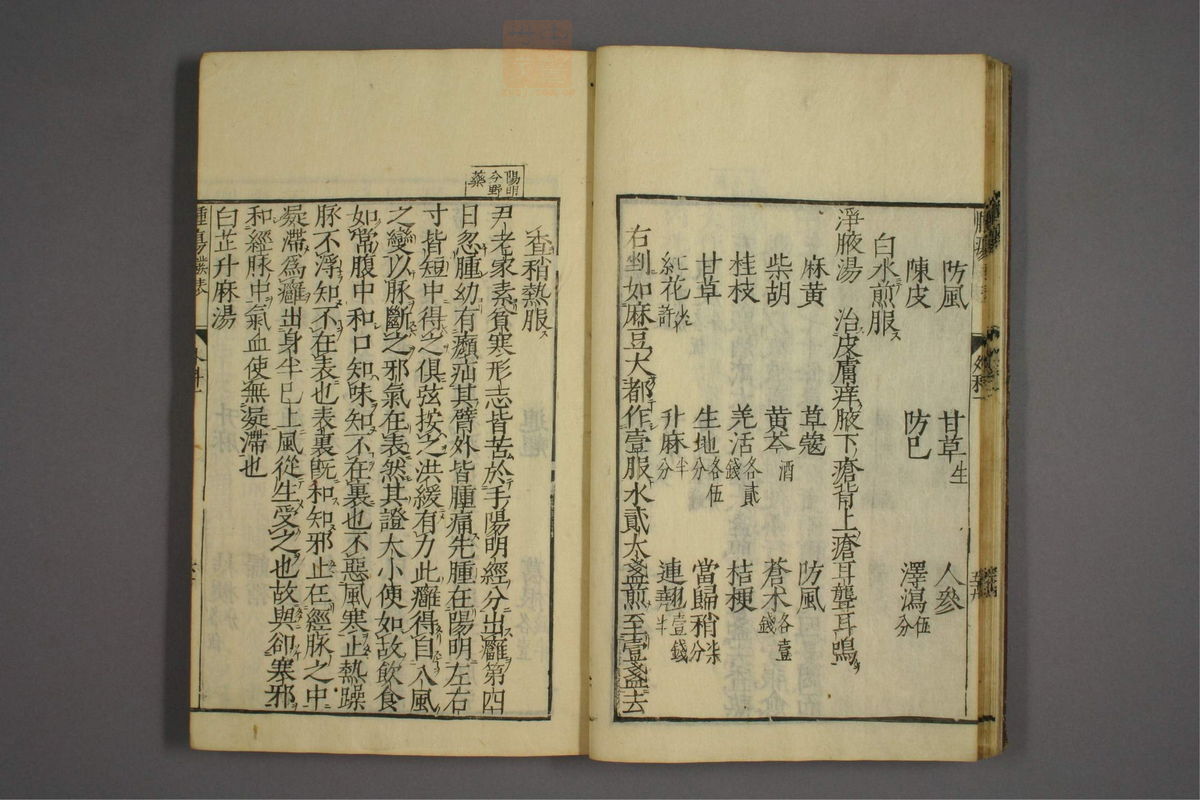 防風 甘草生 人參
陳皮 防巳 澤瀉伍分
白水煎服ス
淨腋湯 治皮膚痒腋下瘡背上瘡耳聾耳鳴
麻黄 草蔻 防風
柴胡 黄芩酒 蒼朮各壹錢
桂枝 羌活各貳錢 桔梗
甘草 生地各伍分 當歸稍柒分
紅花少許 升麻半分 連翹壹錢半
右剉如麻豆大都作壹服水貳大盞煎至壹盞去
查稍熱服
陽明分野藥
尹老家素貧寒形志皆苦於手陽明經分出癰第四
日忽腫幼有癩疝其臂外皆腫痛先腫在陽明左右
寸皆短中得之俱弦按之洪緩有力此癰得自入風
之變以脉斷之邪氣在表然其證大小便如故飲食
如常腹中和口知味知不在裏也不惡風寒止熱躁
脉不浮知不在表也表裏既和知邪止在經脉之中
凝滯爲癰出身半巳上風從生受之也故與卻寒邪
和經脉中氣血使無凝滯也
白芷升麻湯